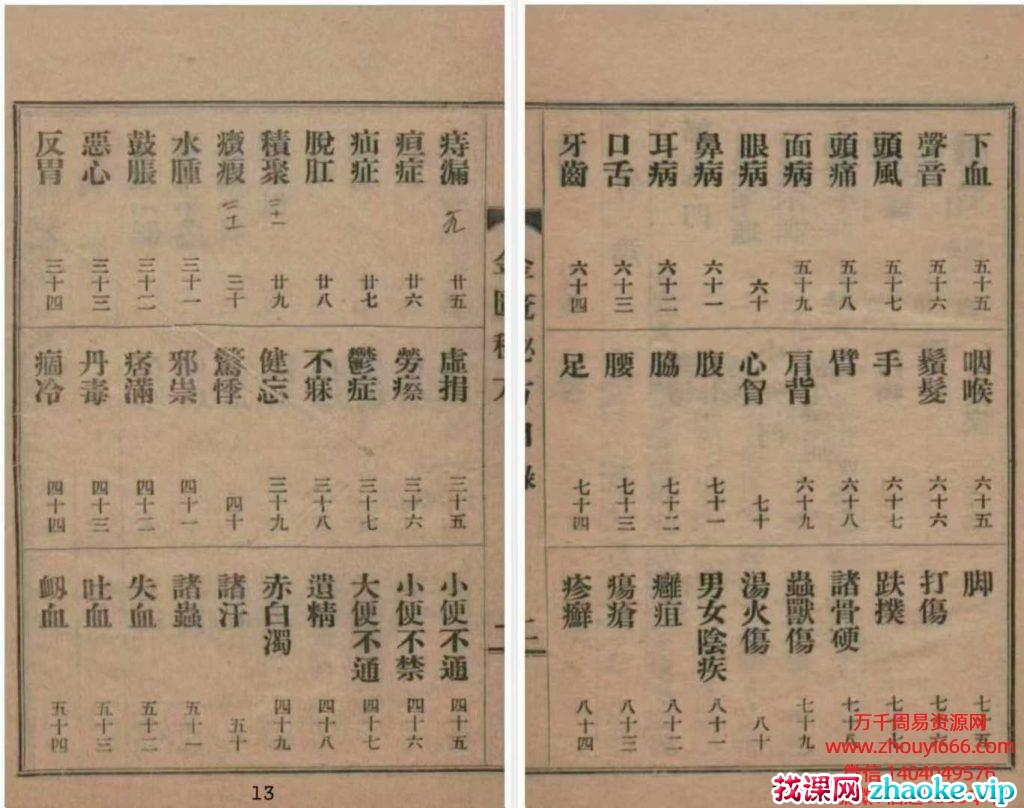 痔漏 廿五
疸症 廿六
疝症 廿七
脫肛 廿八
積聚 廿九
二十一
癥瘕 三十
二十
水腫 三十一
鼓脹 三十二
惡心 三十三
反胃 三十四
虛捐 三十五
勞瘵 三十六
鬱症 三十七
不寐 三十八
健忘 三十九
驚悸 四十
邪祟 四十一
痞滿 四十二
丹毒 四十三
痼冷 四十四
小便不通 四十五
小便不禁 四十六
大便不通 四十七
遺精 四十八
赤白濁 四十九
諸汗 五十
諸蟲 五十一
失血 五十二
吐血 五十三
衂血 五十四
金匱秘方目錄 二
下血 五十五
聲音 五十六
頭風 五十七
頭痛 五十八
面病 五十九
眼病 六十
鼻病 六十一
耳病 六十二
口舌 六十三
牙齒 六十四
咽喉 六十五
鬚髮 六十六
手 六十七
臂 六十八
肩背 六十九
心胷 七十
腹 七十一
脇 七十二
腰 七十三
足 七十四
脚 七十五
打傷 七十六
跌撲 七十七
諸骨硬 七十八
蟲獸傷 七十九
湯火傷 八十
男女陰疾 八十一
癰疽 八十二
瘍瘡 八十三
疹癬 八十四
13
万千周易资源网
www.zhouyi666.com
微信 1404049576
找课网zhaoke.vip